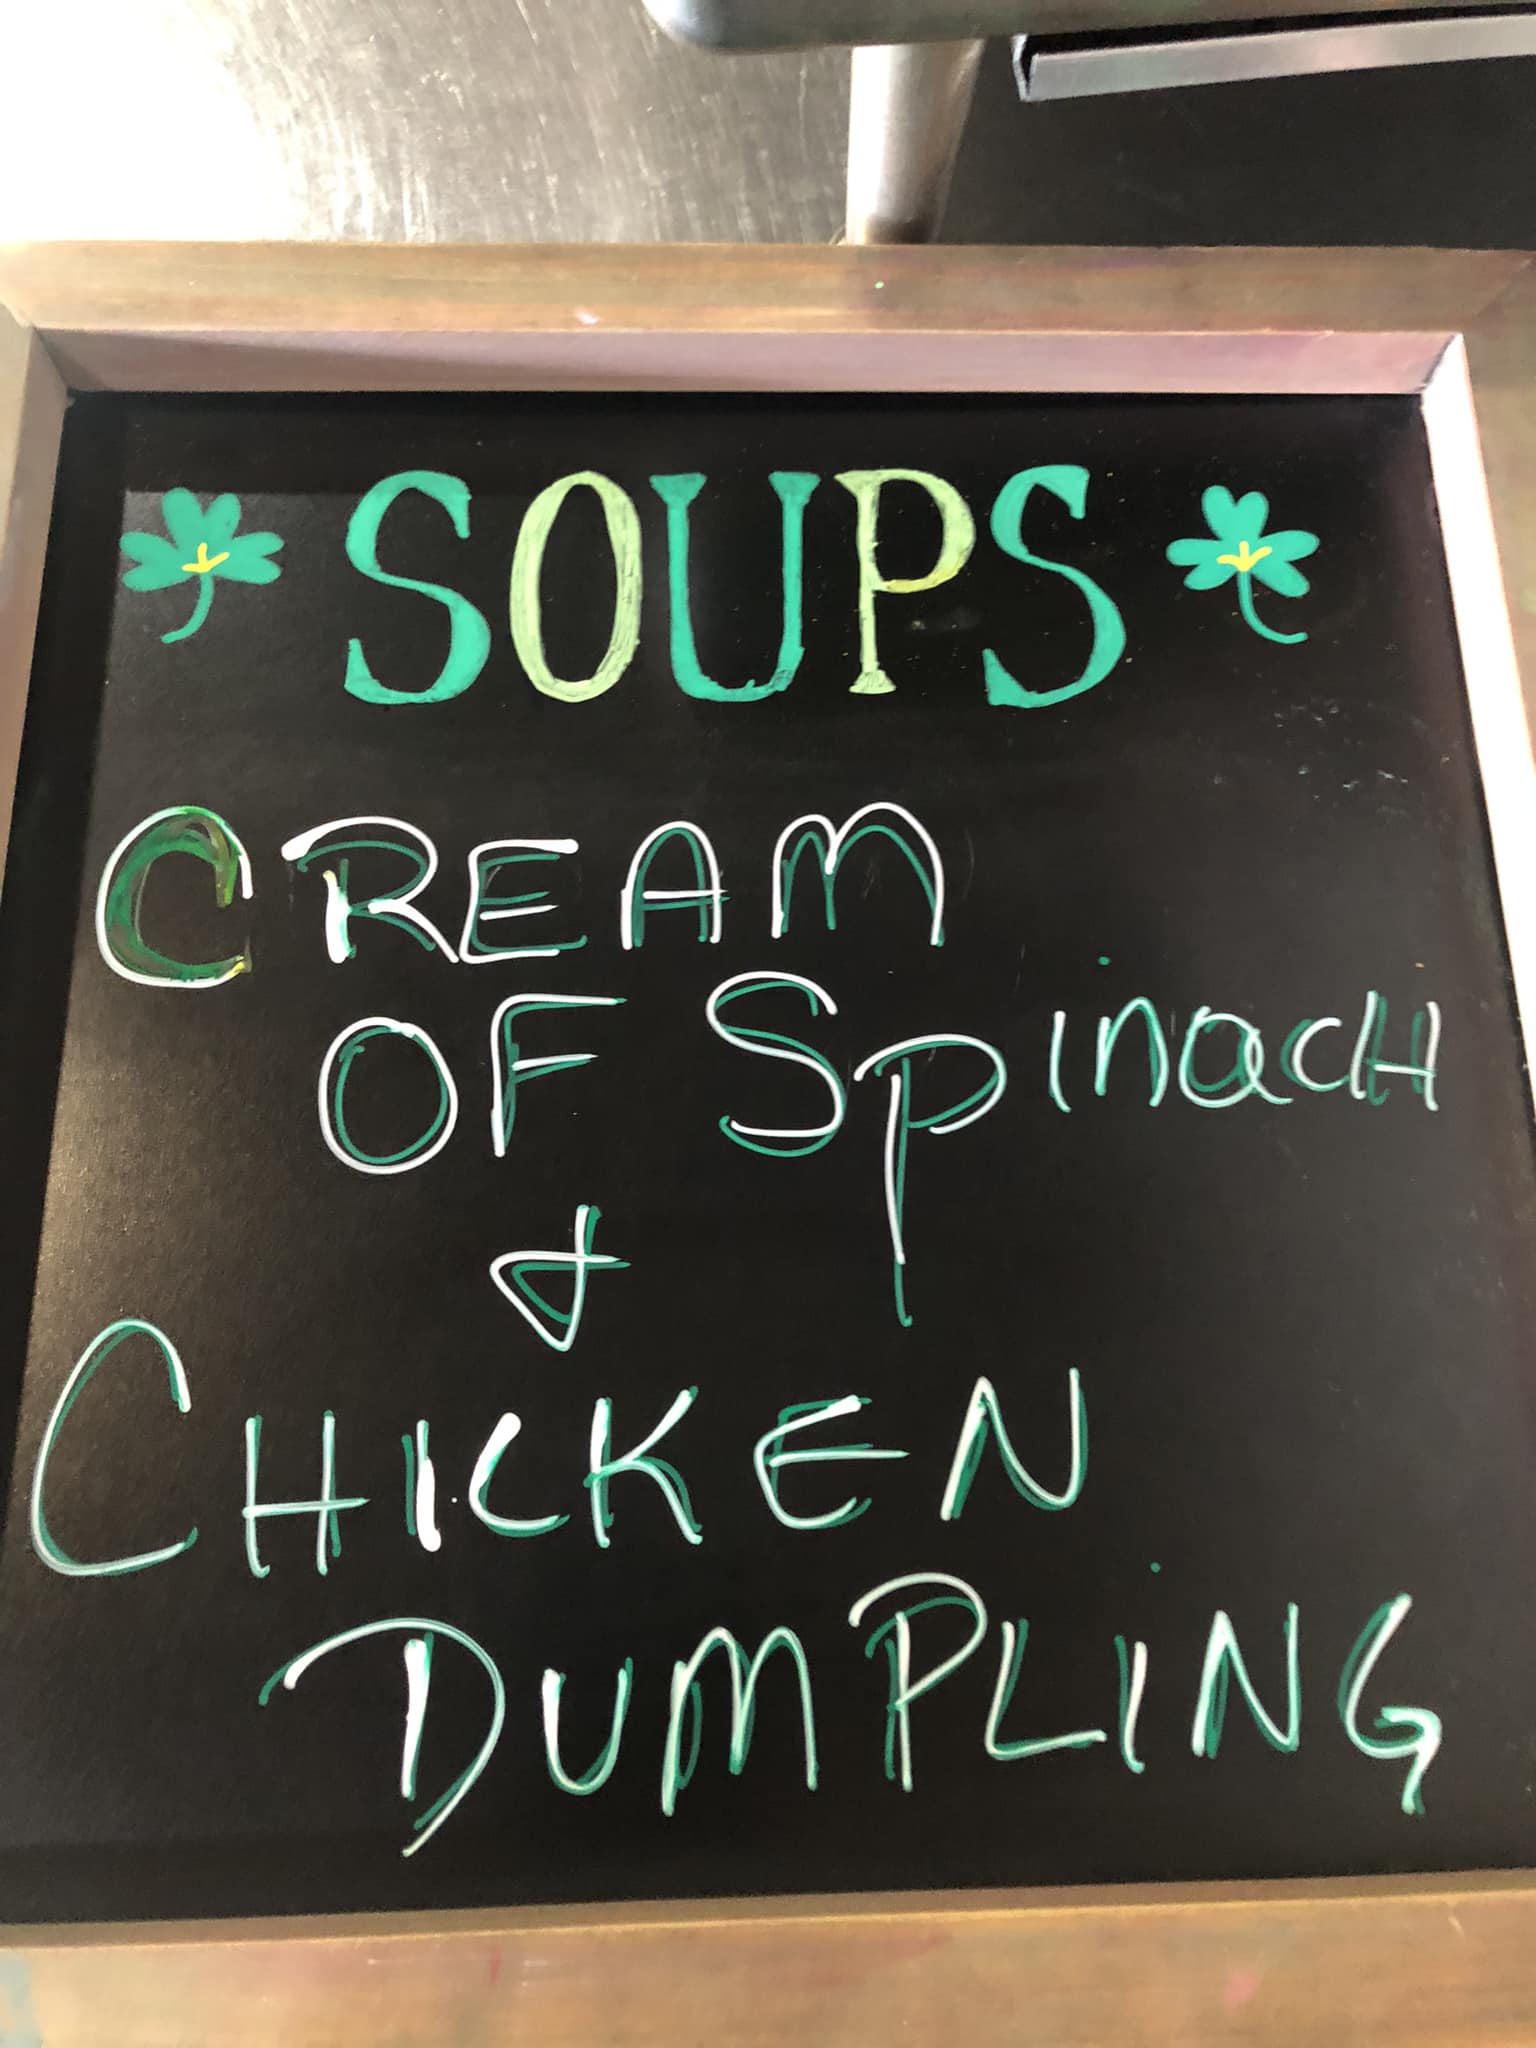 SOUPS
CREAM
OF SpinacH
&
CHICKEN
DUMPLING